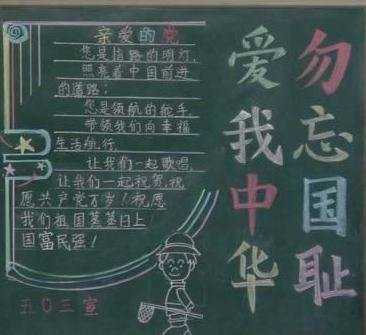 勿忘国耻
爱我中华
亲爱的党
您是指路的明灯,
照亮着中国前进
的道路;
您是领航的舵手,
带领我们向幸福
生活航行,
让我们一起歌唱,
让我们一起祝贺,祝
愿共产党万岁!祝愿
我们祖国蒸蒸日上
国富民强!
五〇三宣